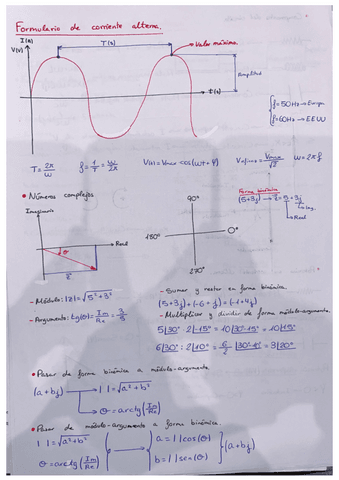 Formulario de corriente alterna.
I(A)
V(v)
T(s)
Valor máximo
Amplitud
t(s)
f=50Hz→Europa
f=60Hz→EEUU
T=2π/ω
f=1/T=ω/2π
V(t)=Vmax cos(ωt+φ)
Veficaz=Vmax/√2
ω=2πf
• Números complejos
Imaginario
Real
θ
z
90°
180°
0°
270°
Forma binómica
(5+3j)→z=5+3j
Img.
Real
- Módulo: |z|=√5²+3²
- Argumento: tg(θ)=Im/Re=3/5
- Sumar y restar en forma binómica.
(5+3j)+(-6+j)=(-1+4j)
- Multiplicar y dividir de forma módulo-argumento
5|30°·2|-15°=10|30°-15°=10|15°
6|30°:2|10°=6/2|30°-10°=3|20°
• Pasar de forma binómica a módulo-argumento.
(a+bj)
| |=√a²+b²
θ=arctg(Im/Re)
• Pasar de módulo-argumento a forma binómica.
| |=√a²+b²
θ=arctg(Im/Re)
a=| |cos(θ)
b=| |sen(θ)
(a+bj)